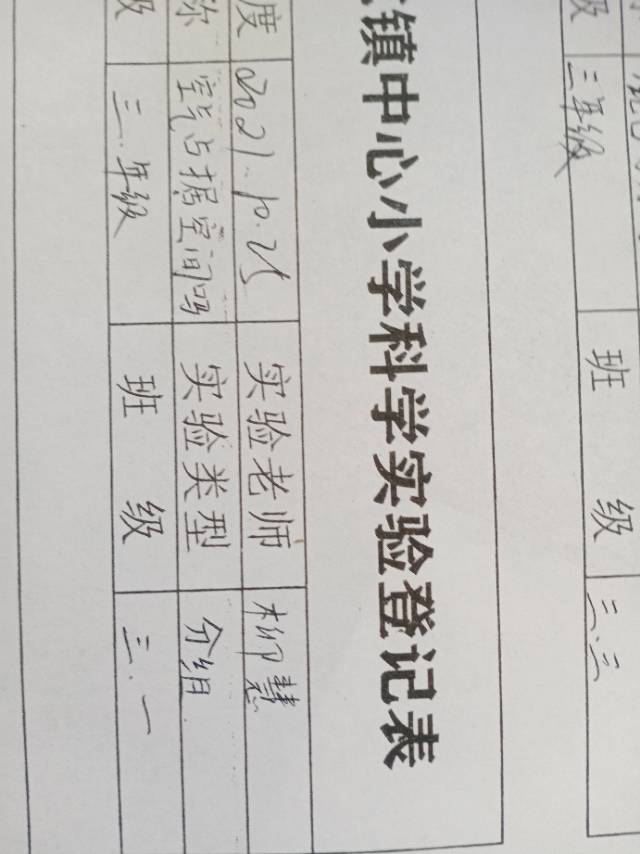 三年级 班 级 三.三
镇中心小学科学实验登记表
度 2021.10.25 实验老师 柳慧
称 空气占据空间吗 实验类型 分组
级 三.年级 班 级 三.一